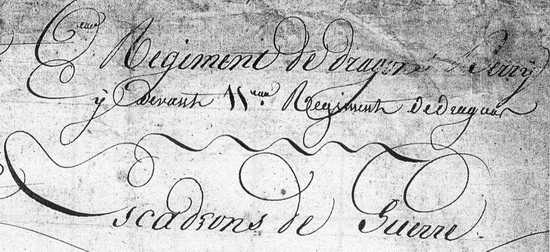 Eme Regiment de dragons
y devant 11eme Regiment de dragons
Escadrons de Guerre.